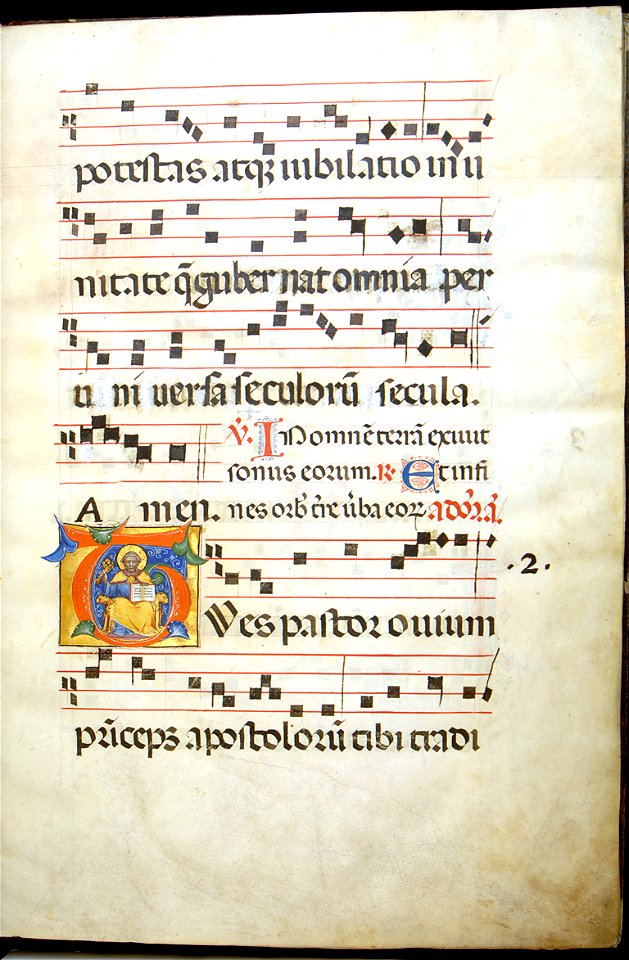 potestas atqꝫ iubilatio in u
nitate q̃ gubernat omnia per
u ni versa seculorū secula.
℣. In omnē terrā exivit
sonus eorum. ℟ Et in fi
A men. nes orb̃ t̃re v̄ba eoꝝ
Tues pastor ovium
.2.
pri̅ceps apostolorū tibi tradi